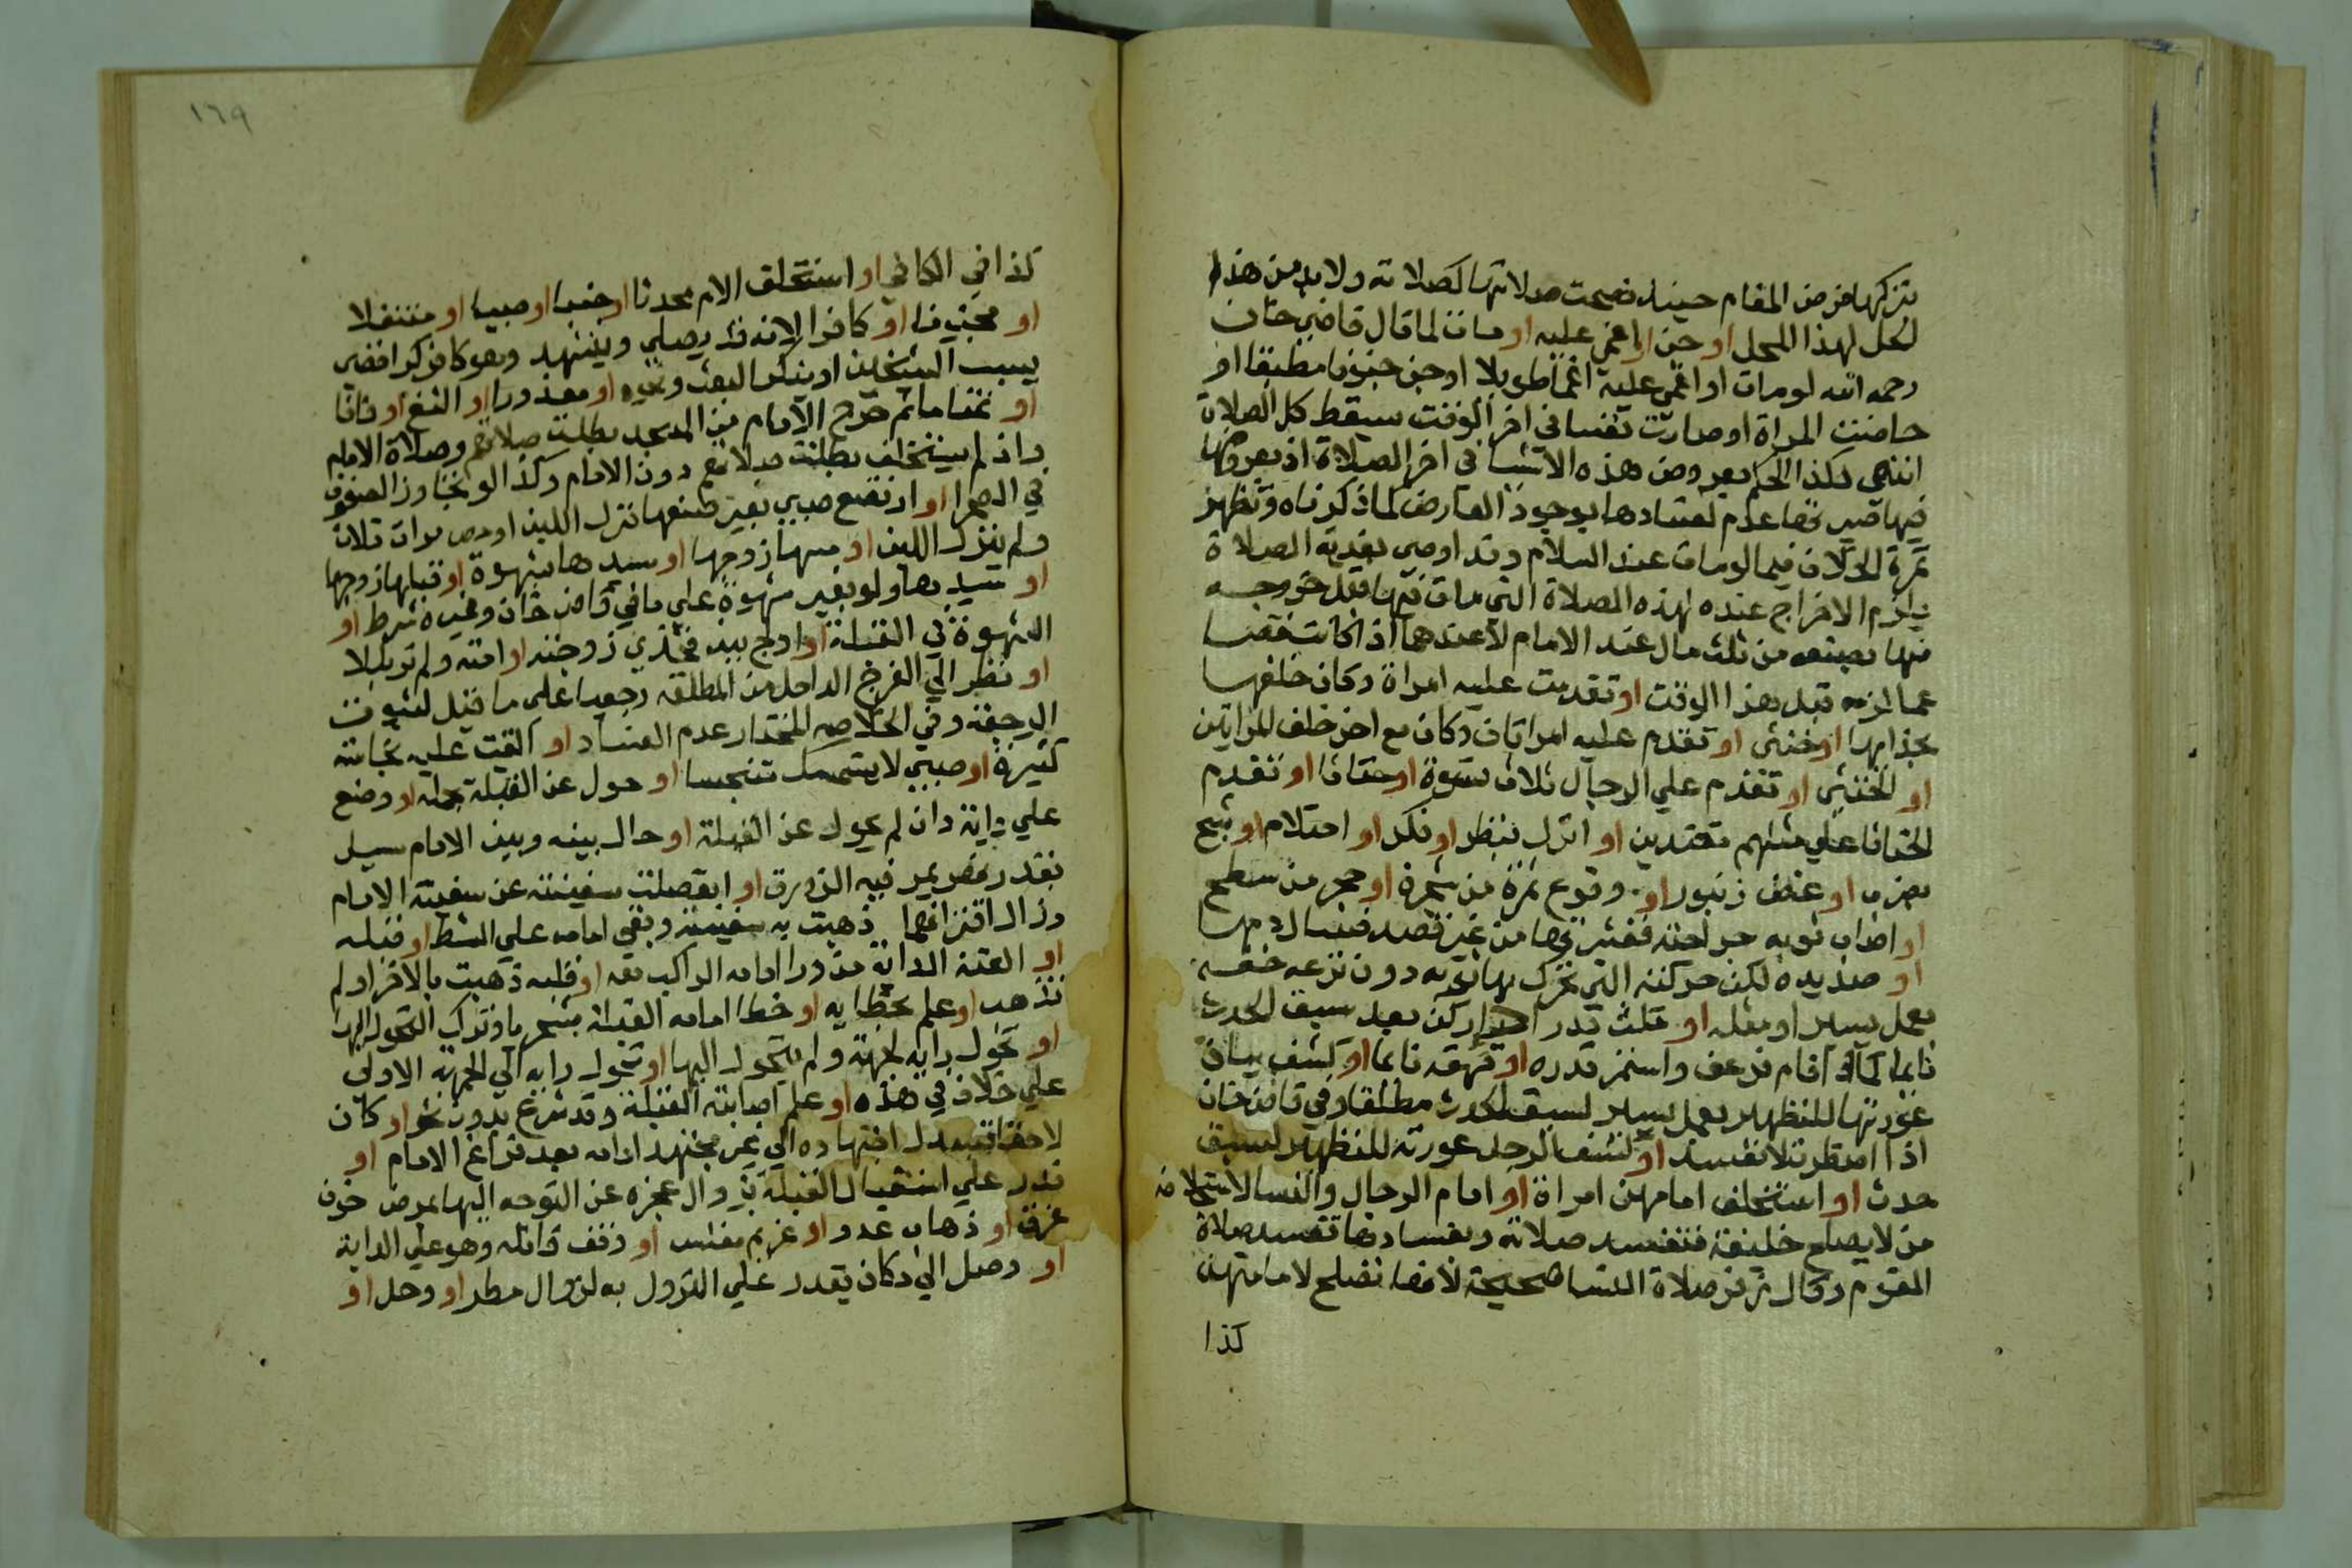 بتركها فرض المقام حينئذ فصحت صلاتها كصلاته ولابد من هذا
لحل لهذا المحل او جن او اغمي عليه او مات لما قال قاضي خان
رحمه الله لو مات او اغمي عليه اغما طويلا او جن جنونا مطبقا او
حاضت المراة او صارت نفسا في اخر الوقت سقط كل الصلاة
انتهى وكذا الحكم بعروض هذه الاشيا في اخر الصلاة اذ بعروضها
فيها صير نحا عدم لفسادها بوجود العارض لما ذكرناه وتظهر
ثمرة الخلاف فيما لو مات عند السلام وقد اوصى بفدية الصلاة
يلزم الاخراج عنده لهذه الصلاة التي مات فيها قبل خروجه
منها بصنعه من ثلث مال عند الامام لا عندهما اذا كانت نقصا
عما لزمه قبل هذا الوقت او تقدمت عليه امراة وكان خلفها
بحذايها او خنثى او تقدم عليه امراتان وكان مع اخر خلف المراتين
او الخنثى او تقدم على الرجال ثلاث نسوة او خناثا او تقدم
الخناثا على مثلهم مقتدين او انزل بنظر او فكر او احتلام او شج
بضرب او عض زنبور او وقوع ثمرة من شجرة او حجر من سطح
او اصاب ثوبه جراحته فقشرها من غير قصد فسال دمها
او صديده لكن حركته التي تحرك بها ثوبه دون نزعه خفه
بعمل يسير او مثله او مكث قدر اداء ركن بعد سبق الحدث
نايما كما لو اقام فرعف واستمر قدره او قهقه نايما او كشف بيان
عورتها للتطهير بعمل يسير لسبق الحدث مطلقا وفي قاضي خان
اذا اضطرت لا تفسد او كشف الرجل عورته للتطهير لسبق
حدث او استخلف امامهن امراة او امام الرجال والنسا لاستخلافه
من لا يصلح خليفة فتفسد صلاته وبفسادها تفسد صلاة
القوم وقال زفر صلاة النسا صحيحة لانها تصلح لامامتهن
كذا
١٦٩
كذا في الكافي او استخلف الامام محدثا او جنبا او صبيا او متنفلا
او مجنونا او كافرا لانه قد يصلي ويتشهد وهو كافر كرافضي
يسب الشيخين او ينكر البعث ونحوه او معذورا او الثغ او فاقا
او تمتاما ثم خرج الامام من المسجد بطلت صلاتهم وصلاة الامام
وان لم يستخلف بطلت صلاتهم دون الامام وكذا لو تجاوز الصفوف
في الصحرا او ارتضع صبي بغير صنعها نزل اللبن او مص مرات ثلاث
ولم ينزل اللبن او مسها زوجها او سيدها بشهوة او قبلها زوجها
او سيدها ولو بغير شهوة على ما في قاضي خان وغيره شرط او
الشهوة في القبلة او اولج بين فخذي زوجته او امته ولم تر بللا
او نظر الى الفرج الداخل من المطلقة رجعيا على ما قيل لثبوت
الرجعة وفي الخلاصه المختار عدم الفساد او القيت عليه نجاسة
كثيرة او صبي لا يستمسك تنجسا او حول عن القبلة بحمله او وضع
على دابة وان لم يحول عن القبلة او حال بينه وبين الامام سيل
بقدر نهر يمر فيه الزورق او انفصلت سفينته عن سفينة الامام
وزال اقترانهما ذهبت به سفينة وبقي امامه على الشط او قبله
او العقت الدابة من ورا امامه الراكب معه او قلبه ذهبت بالاخر او لم
تذهب او علم بخطايه او خطا امامه القبلة بتحر ما وترك التحول اليها
او تحول رايه لجهة ولم يتحول اليها او تحول رايه الى الجهة الاولى
على خلاف في هذه او علم اصابته القبلة وقد شرع بدون تحر او كان
لاحقا فتبدل اجتهاده الى غير مجتهد امامه بعد فراغ الامام او
قدر على استقبال القبلة بزوال عجزه عن التوجه اليها لمرض خوف
غرق او ذهاب عدو او غريم مفلس او وقف قافله وهو على الدابة
او وصل الى دكان يقدر على النزول به لزوال مطر او وحل او